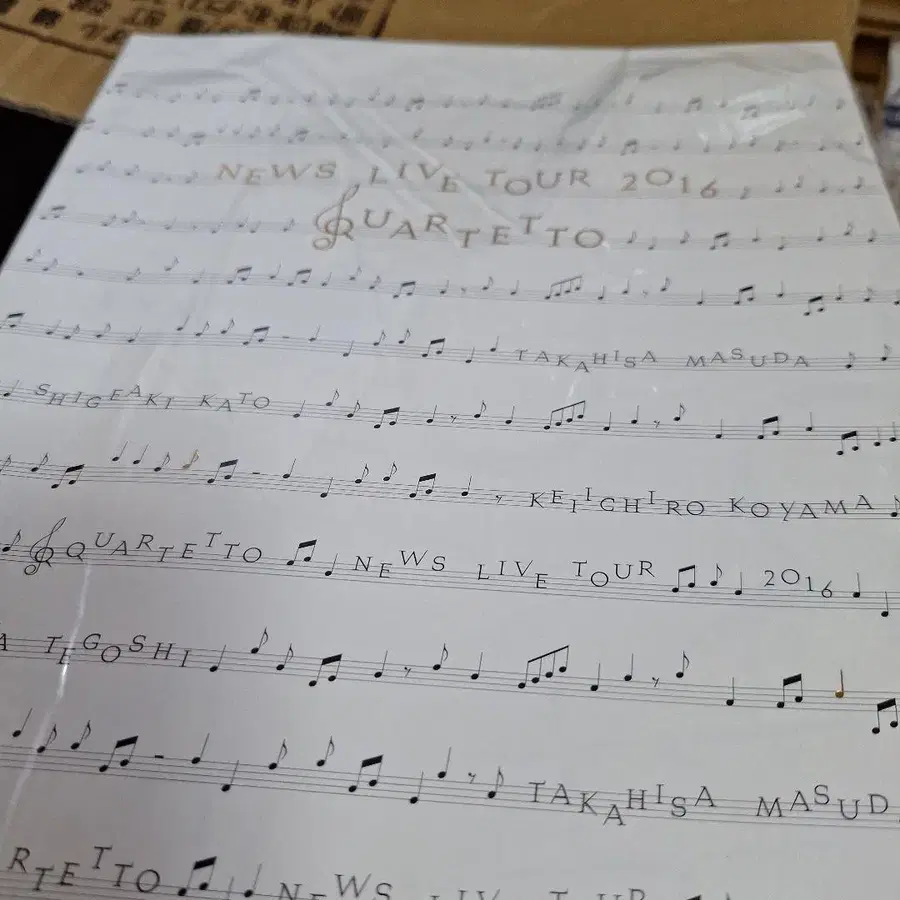 NEWS LIVE TOUR 2016
QUARTETTO
TAKAHISA MASUDA
SHIGEAKI KATO
KEIICHIRO KOYAMA
QUARTETTO NEWS LIVE TOUR 2016
A TEGOSHI
TAKAHISA MASUD
RTETTO NEWS LIV